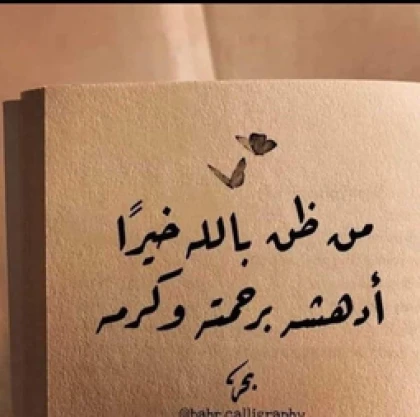 من ظن بالله خيرًا
أدهشه برحمته وكرمه
بحر
@bahr.calligraphy